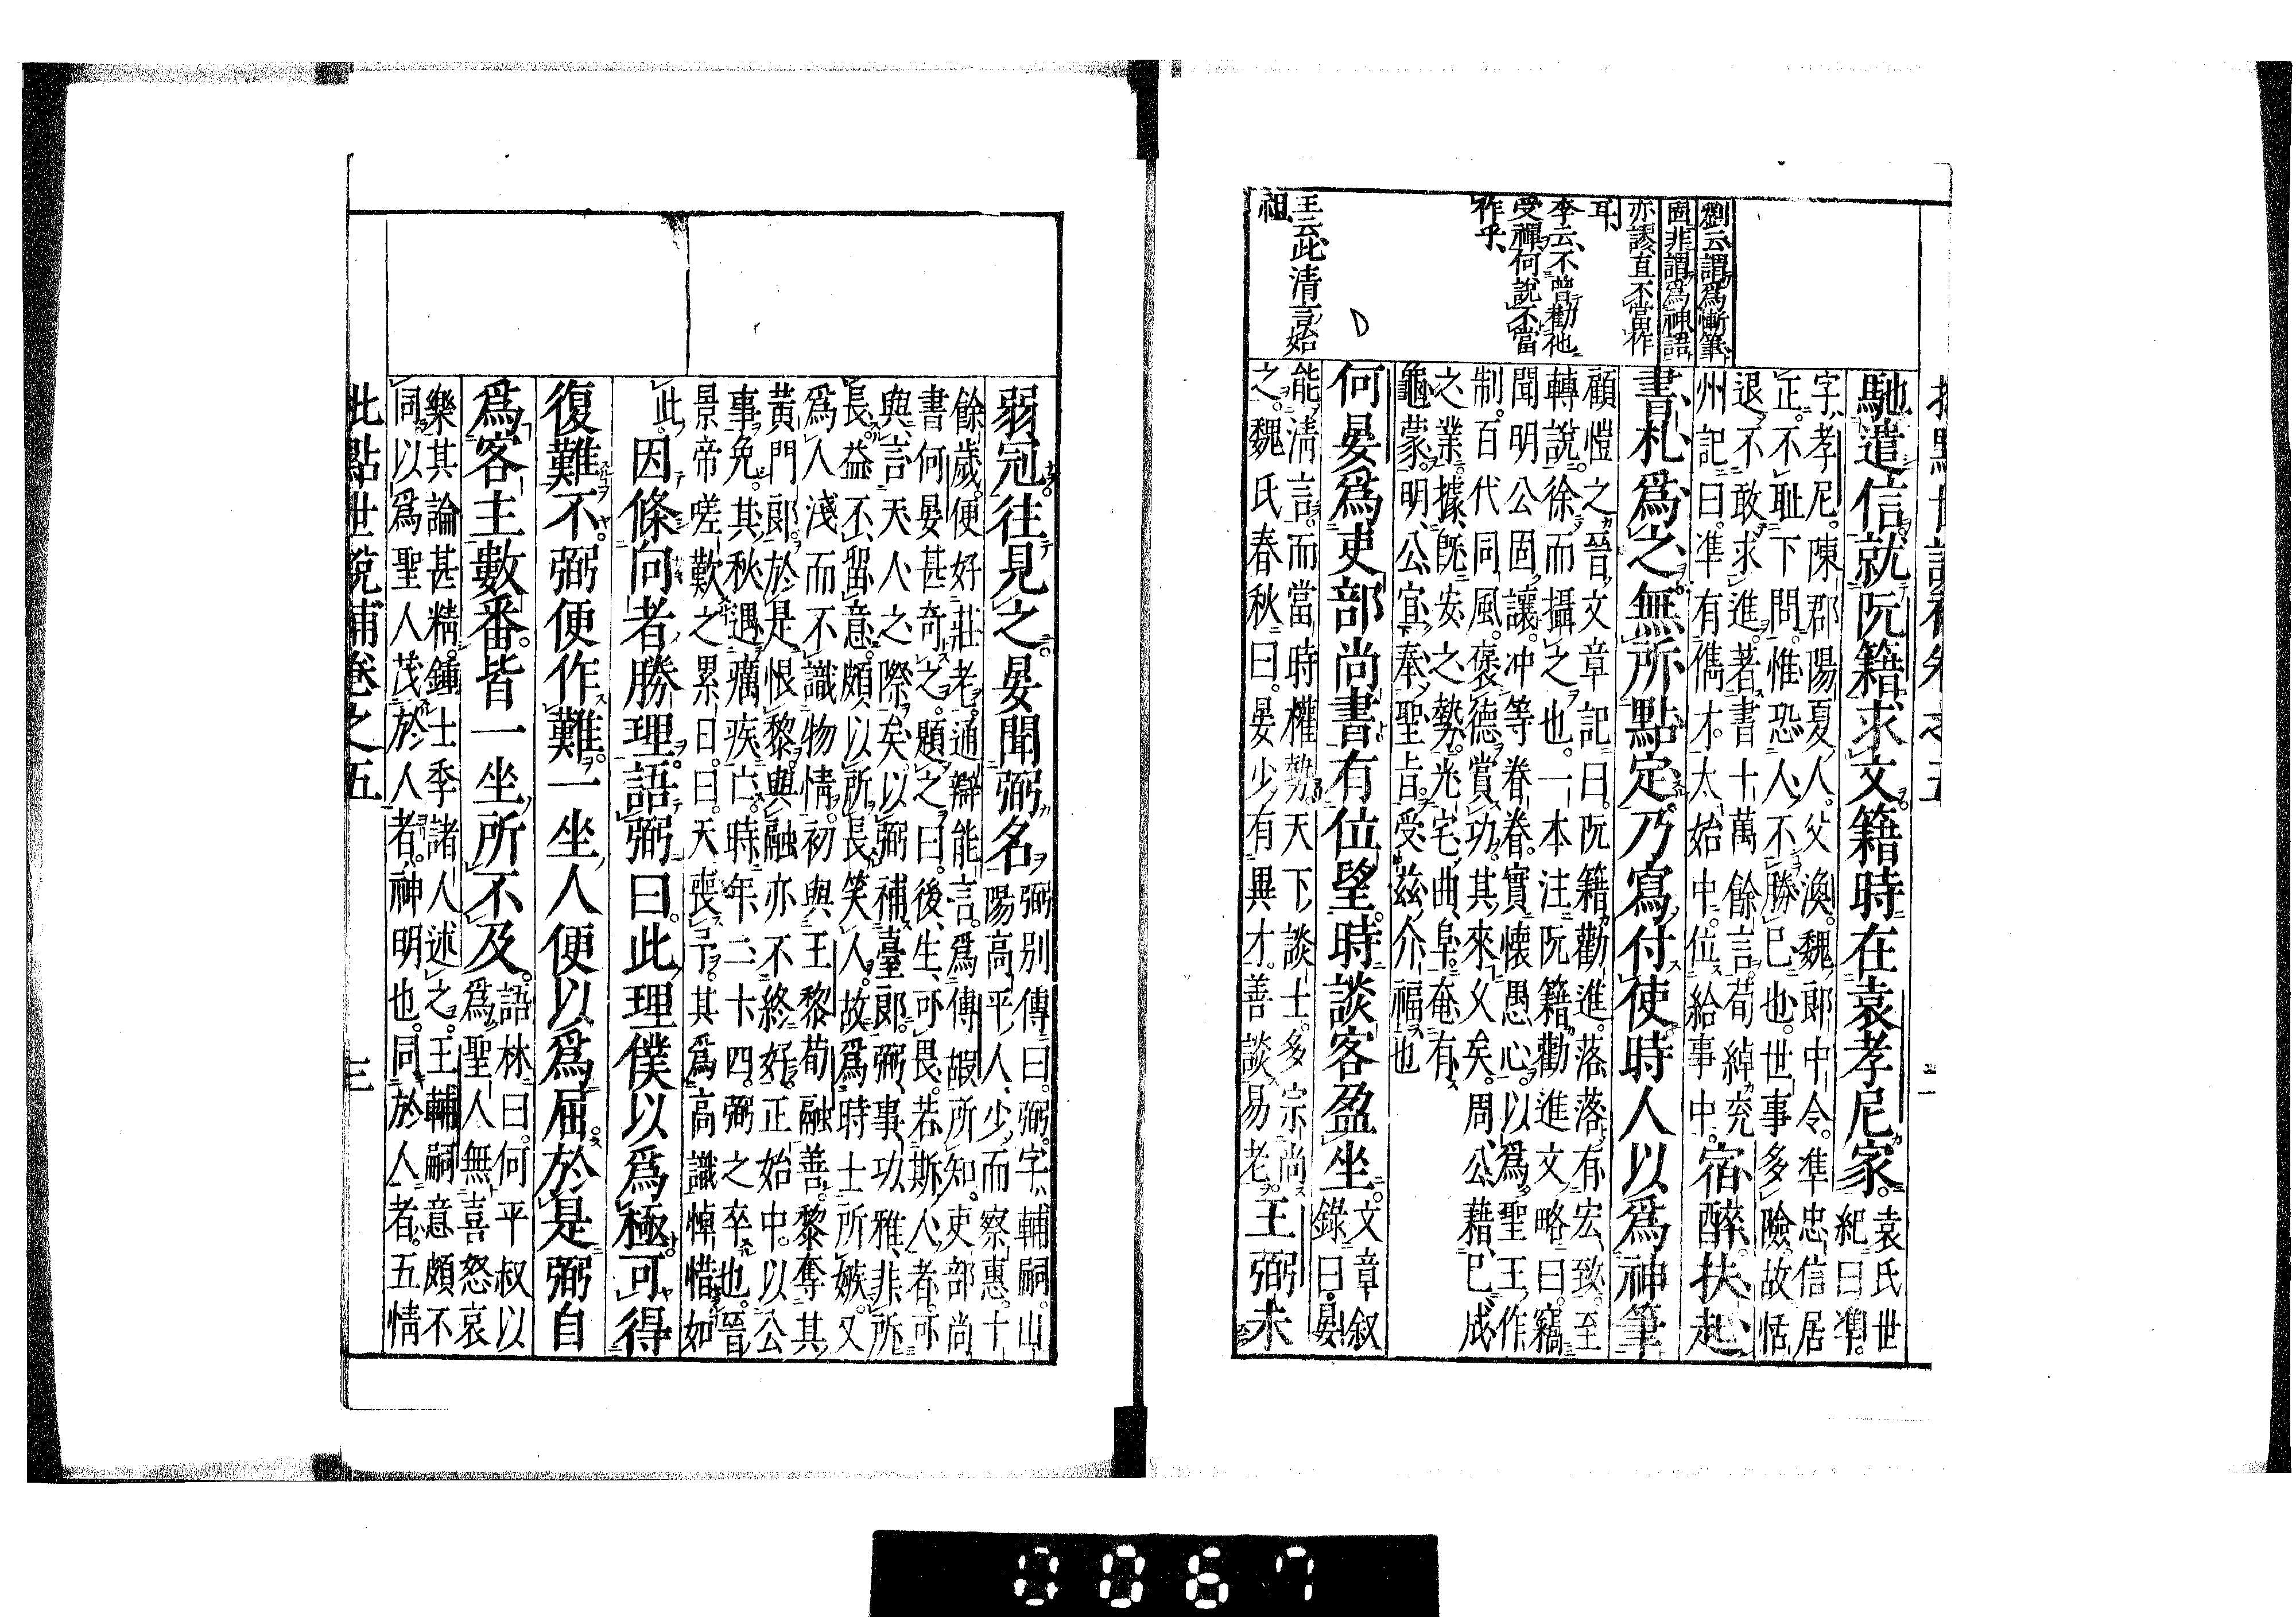 劉云、謂爲慚筆、
固非謂爲神語
亦謬、直不當作
耳、
李云、不曾勸他
受禪、何說不當
作乎、
王云、此清言始
祖
馳遣信就阮籍求文。籍時在袁孝尼家。袁氏世
紀曰。準。
字孝尼。陳郡陽夏人。父渙。魏郎中令。準忠信居
正。不恥下問。惟恐人不勝己也。世事多險。故恬
退不敢求進。著書十萬餘言。荀綽兗
州記曰。準有儁才。太始中。位給事中。宿醉扶起、
書札爲之。無所點定。乃寫付使。時人以爲神筆
顧愷之晉文章記曰。阮籍勸進。落落有宏致。至
轉說。徐而攝之也。一本注阮籍勸進文略曰。竊
聞明公固讓。冲等眷眷。實懷愚心。以爲聖王作
制。百代同風。褒德賞功。其來久矣。周公藉已成
之業。據既安之勢。光宅曲阜。奄有
龜蒙。明公宜奉聖旨。受茲介福也
何晏爲吏部尚書。有位望。時談客盈坐。文章叙
錄曰。晏
能清言。而當時權勢。天下談士。多宗尚
之。魏氏春秋曰。晏少有異才。善談易老。王弼未
弱冠往見之。晏聞弼名弼別傳曰。弼字輔嗣。山
陽高平人。少而察惠。十
餘歲。便好莊老。通辯能言。爲傅嘏所知。吏部尚
書何晏甚奇之。題之曰。後生可畏。若斯人者。可
與言天人之際矣。以弼補臺郎。弼事功雅非所
長。益不留意。頗以所長笑人。故爲時士所嫉。又
爲人淺而不識物情。初與王黎荀融善。黎奪其
黃門郎。於是恨黎。與融亦不終好。正始中。以公
事免。其秋遇癘疾亡。時年二十四。弼之卒也。晉
景帝嗟歎之累日。曰。天喪予。其爲高識悼惜如
此。因條向者勝理。語弼曰。此理僕以爲極可得
復難不。弼便作難。一坐人便以爲屈。於是弼自
爲客主數番。皆一坐所不及。語林曰。何平叔以
爲聖人無喜怒哀
樂。其論甚精。鍾士季諸人述之。王輔嗣意頗不
同。以爲聖人茂於人者。神明也。同於人者。五情
批點世說補卷之五　三